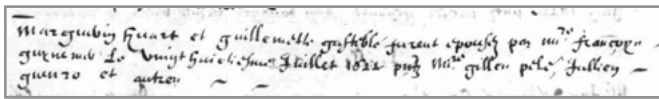 Marguivin huart et guillemette gasteble furent epousez par mire françoys
guyneuer Le vingt huictiesme Juillet 1622 pntz mire gilles pele, Jullien
guerro et autres